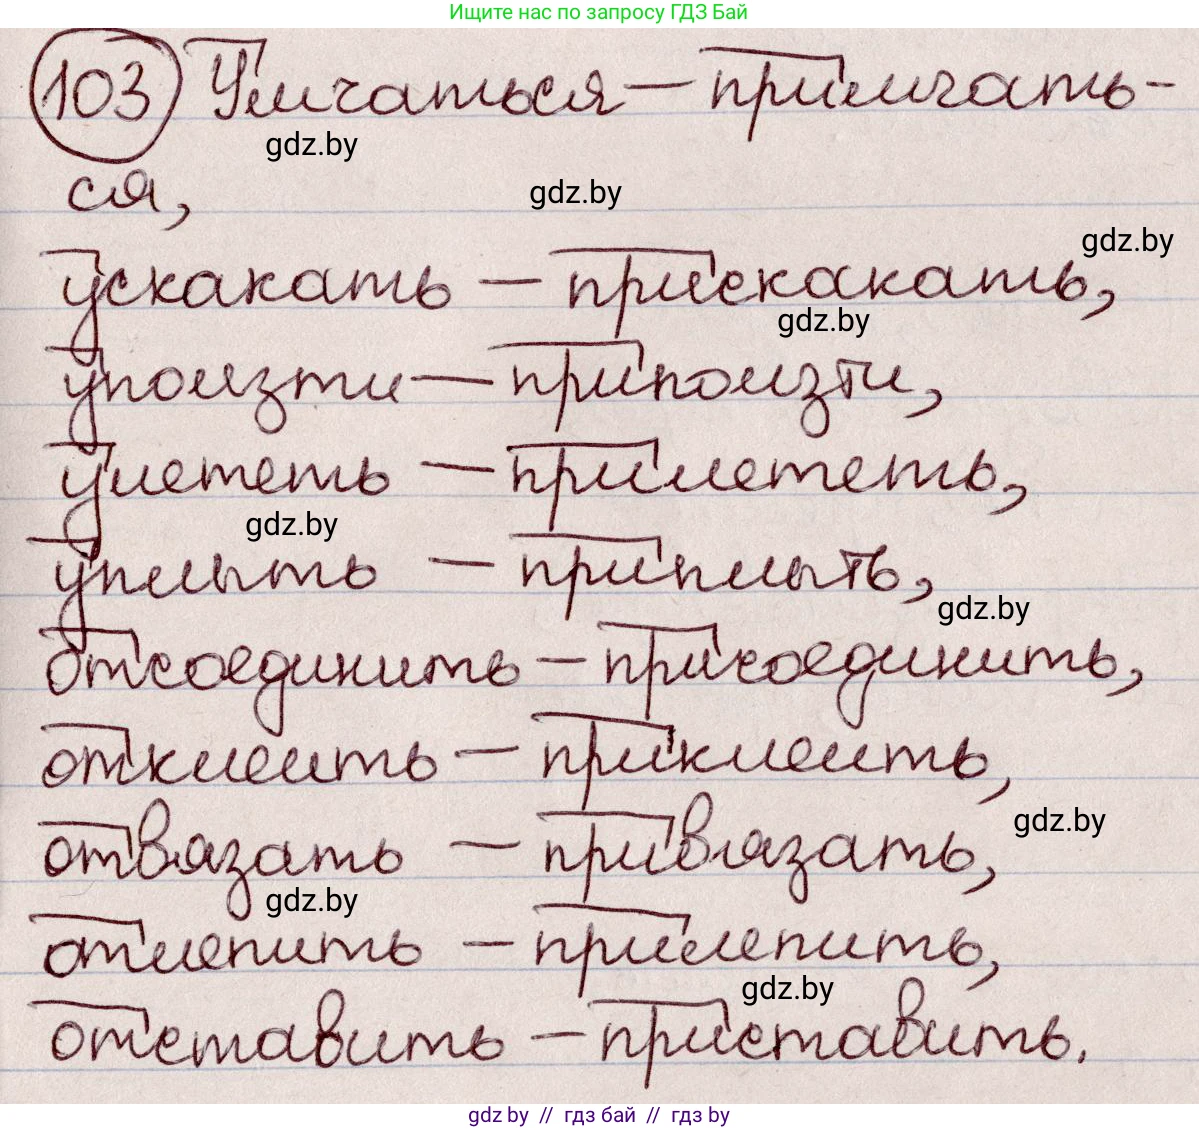 Ищите нас по запросу ГДЗ Бай
103 Умчаться — примчать-
gdz.by
ся,
gdz.by
gdz.by
ускакать — прискакать,
gdz.by
уползти — приползти,
улететь — прилететь,
gdz.by
уплыть — приплыть,
gdz.by
отсоединить — присоединить,
отклеить — приклеить,
gdz.by
отвязать — привязать,
gdz.by
отлепить — прилепить,
gdz.by
отставить — приставить.
gdz by // гдз бай // гдз by